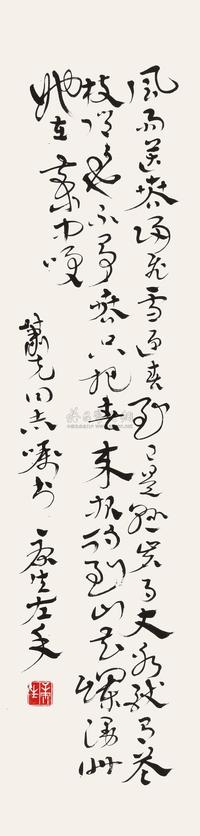 风雨送春归飞雪迎春到已是悬崖百丈冰犹有花
枝俏俏也不争春只把春来报待到山花烂漫时
她在丛中笑
萧克同志嘱书 康生左手
康生